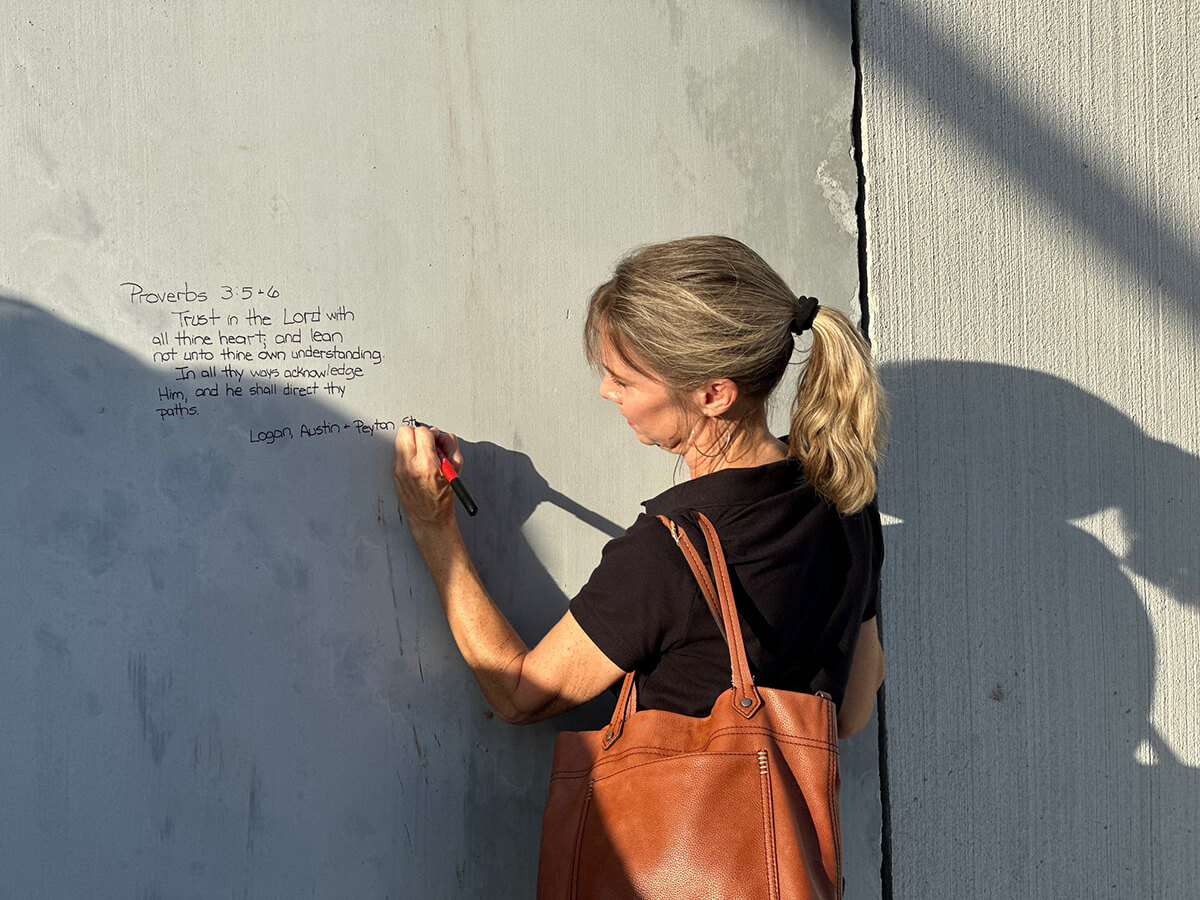 Proverbs 3:5+6
Trust in the Lord with
all thine heart; and lean
not unto thine own understanding.
In all thy ways acknowledge
Him, and he shall direct thy
paths.
Logan, Austin + Peyton St